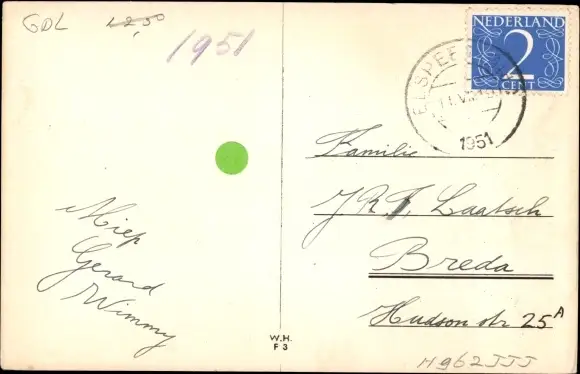 GDL 2,50
1951
NEDERLAND
2
CENT
ELSPEET
1951
Familie
J.R.F. Laatsch
Breda
Hudson str 25A
Miep
Gerard
Wimmy
W.H.
F 3
H962JJJ